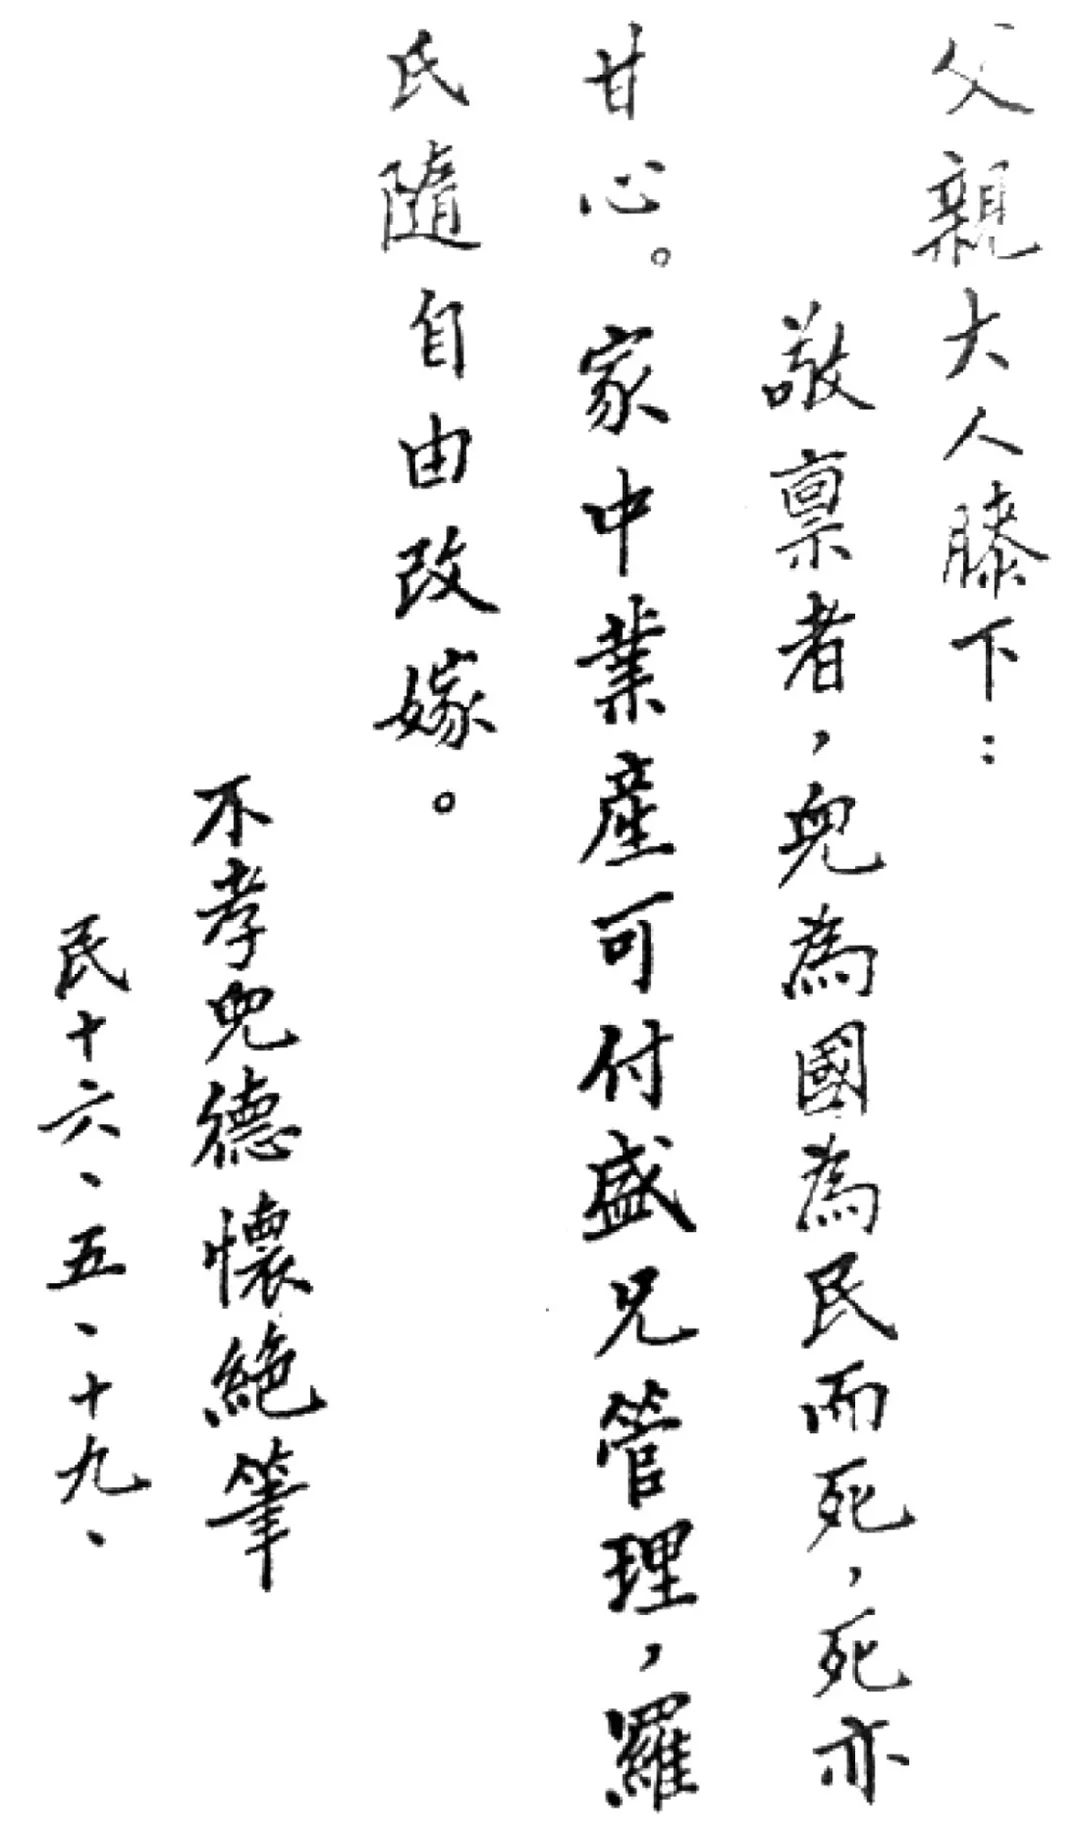 父親大人膝下：
敬禀者，兒為國為民而死，死亦
甘心。家中業產可付盛兄管理，羅
氏隨自由改嫁。
不孝兒德懷絕筆
民十六、五、十九、